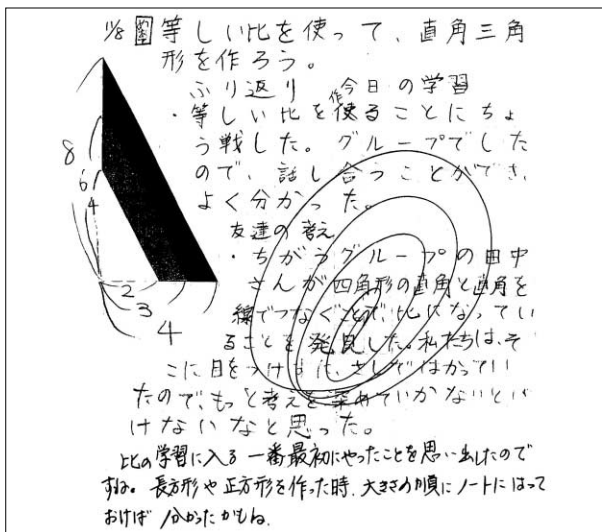 11/8 等しい比を使って、直角三角
形を作ろう。
ふり返り 今日の学習
・等しい比を作ることにちょ
う戦した。グループでした
ので、話し合うことができ、
よく分かった。
友達の考え
・ちがうグループの田中
さんが四角形の直角と直角を
線でつなぐことで、比になってい
ることを発見した。私たちは、そ
こに目をつけずに、さしではかってい
たので、もっと考えを深めていかないとい
けないなと思った。
比の学習に入る一番最初にやったことを思い出したので
すね。長方形や正方形を作った時、大きさの順にノートにはって
おけば分かったかもね。
8
6
4
2
3
4